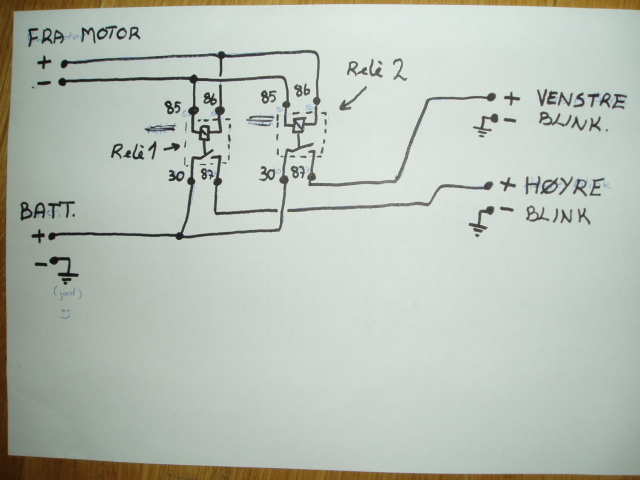 FRA MOTOR
+
-
Relè 2
85 86
85 86
+ VENSTRE
- BLINK.
Relè 1
30 87
30 87
+ HØYRE
- BLINK
BATT.
+
-
(jord)